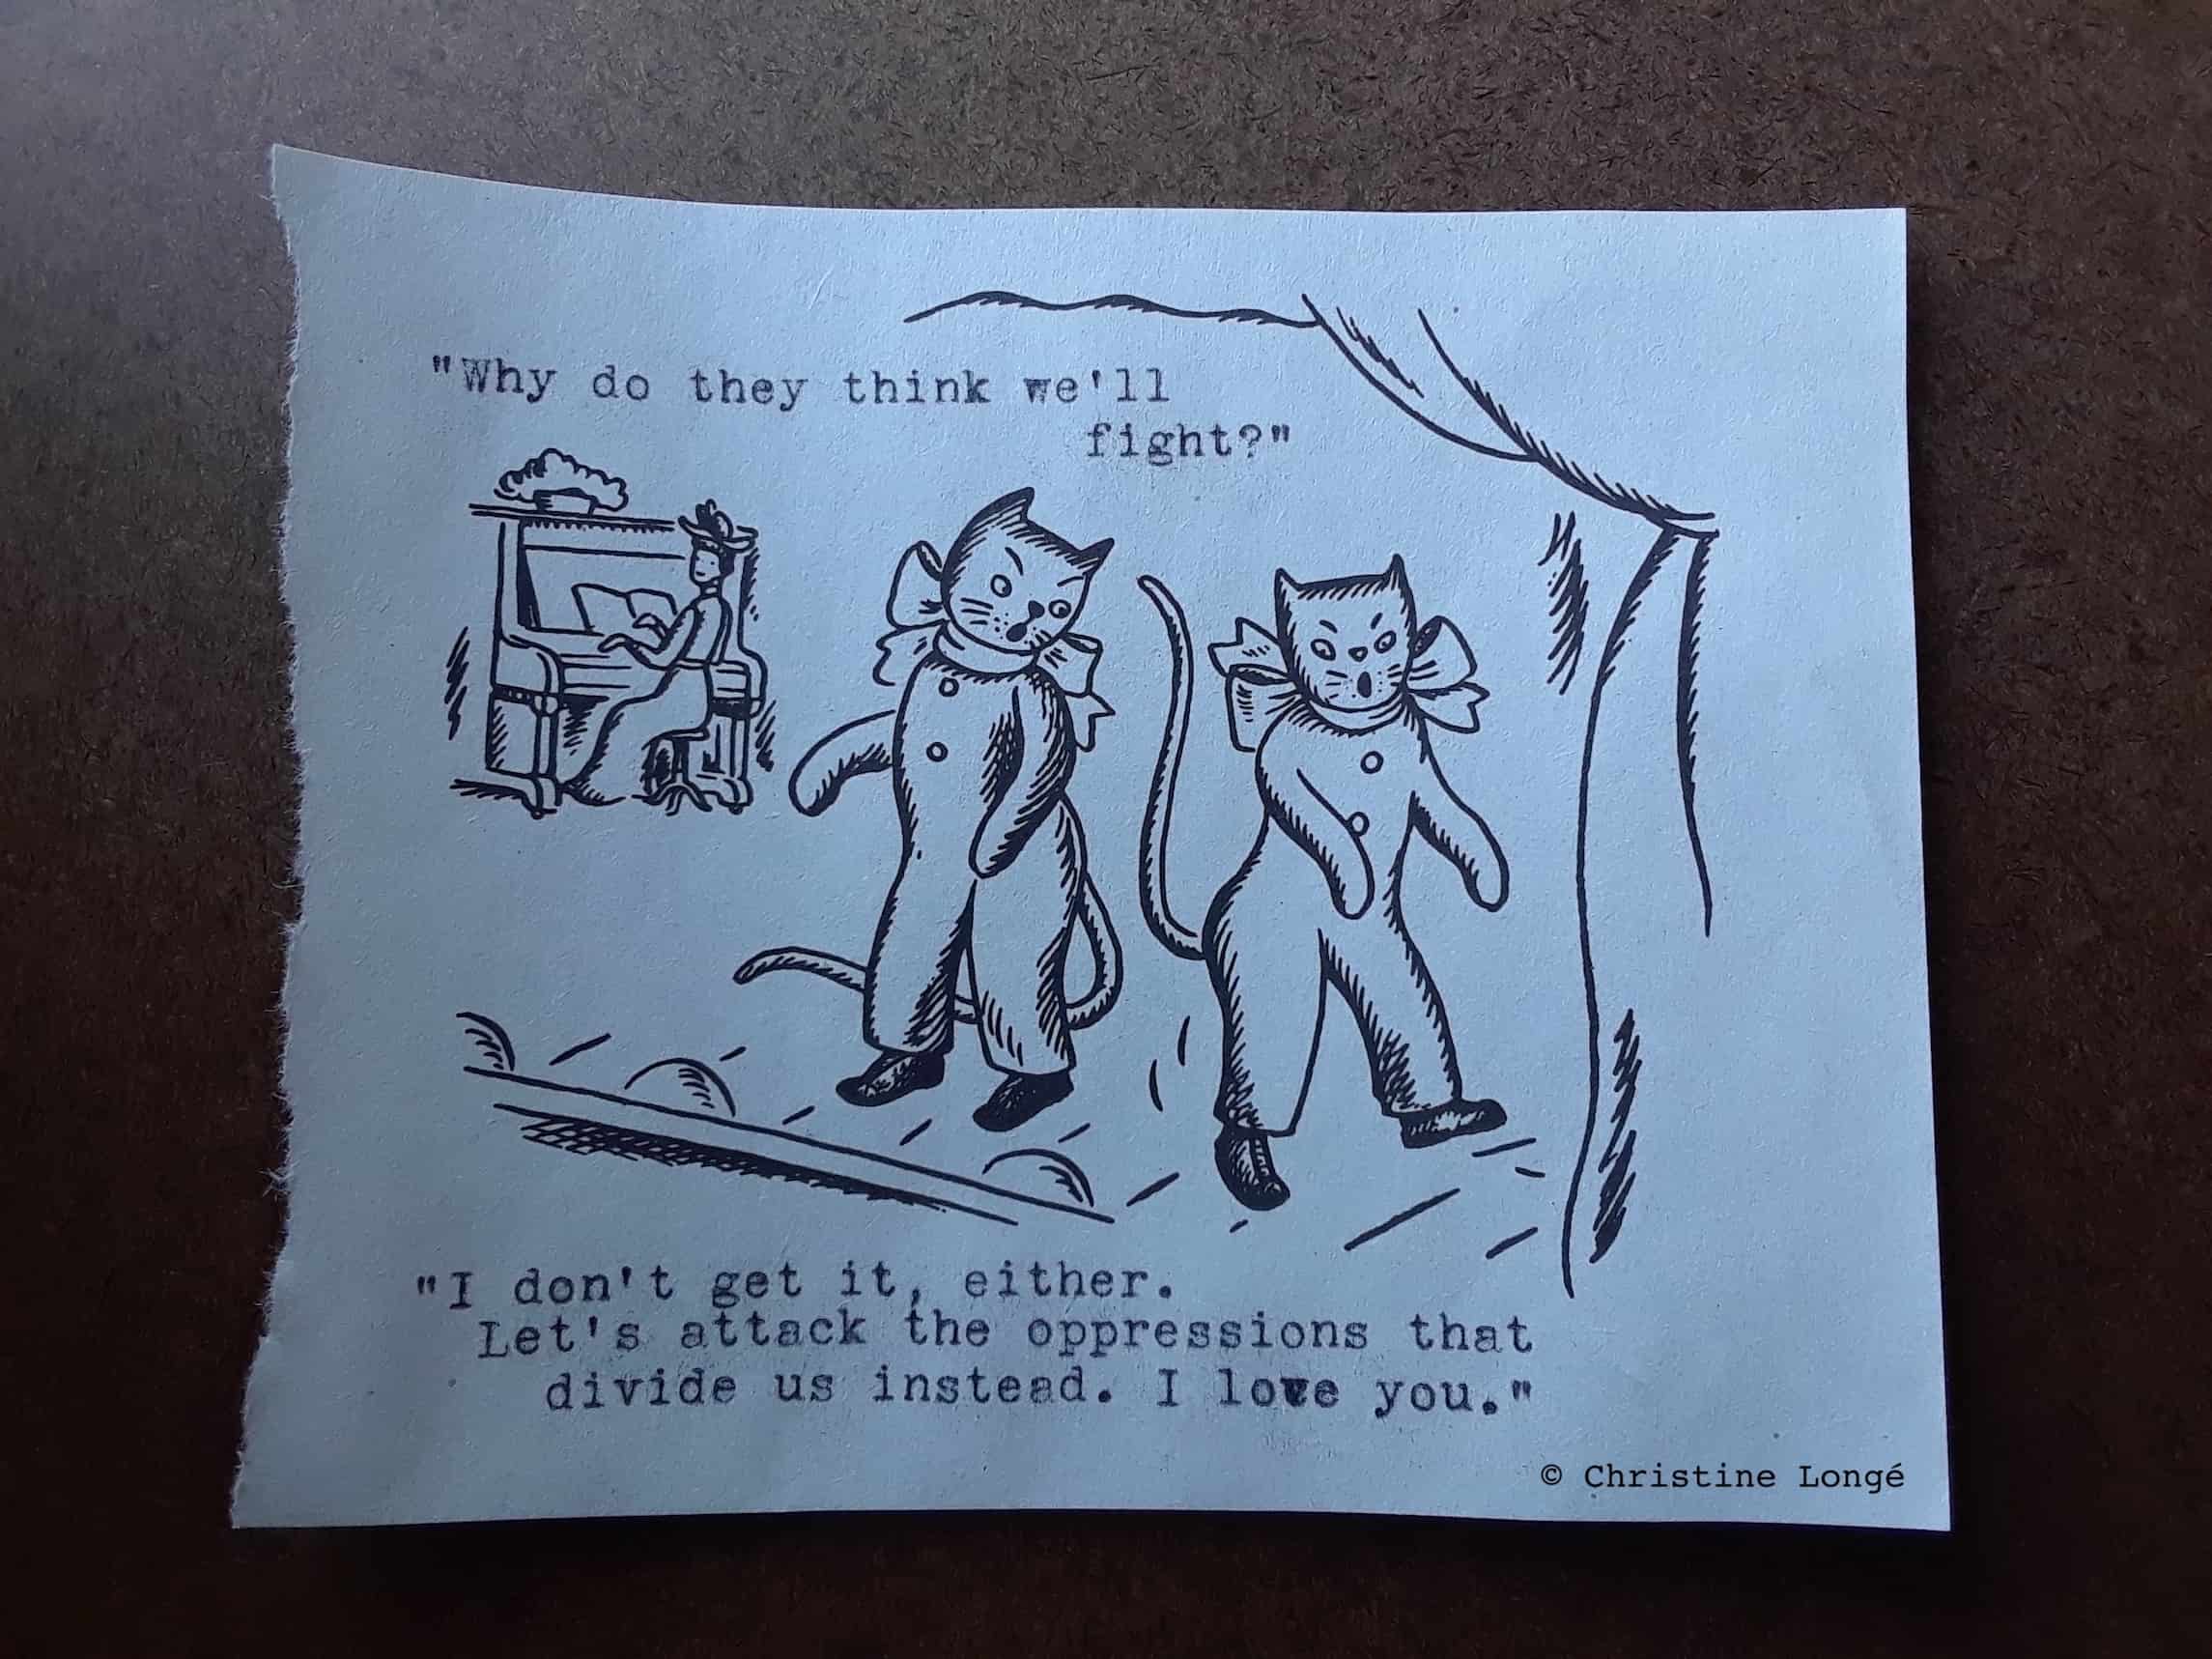 "Why do they think we'll
fight?"
"I don't get it, either.
Let's attack the oppressions that
divide us instead. I love you."
© Christine Longé